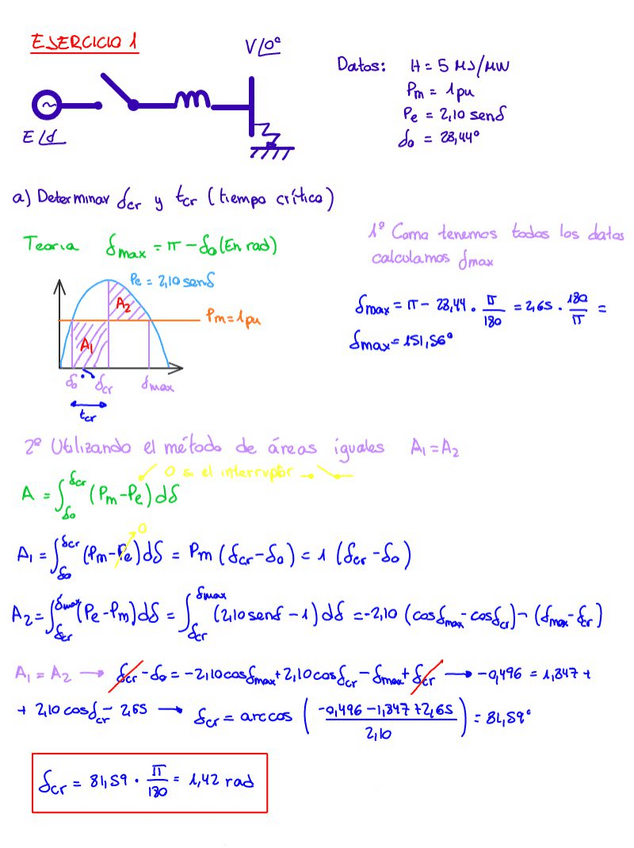 EJERCICIO 1
V/0º
E/d
Datos: H = 5 MJ/MW
Pm = 1 pu
Pe = 2,10 senδ
δo = 28,44º
a) Determinar δcr y tcr (tiempo crítico)
Teoria δmax = π - δo (En rad)
Pe = 2,10 senδ
A2
Pm = 1 pu
A1
δo δcr δmax
tcr
1º Como tenemos todos los datos
calculamos δmax
δmax = π - 28,44 · π/180 = 2,65 · 180/π =
δmax = 151,56º
2º Utilizando el método de áreas iguales A1 = A2
0 si el interruptor
A = ∫δo^δcr (Pm - Pe) dδ
0
A1 = ∫δo^δcr (Pm - Pe) dδ = Pm (δcr - δo) = 1 (δcr - δo)
A2 = ∫δcr^δmax (Pe - Pm) dδ = ∫δcr^δmax (2,10 senδ - 1) dδ = -2,10 (cosδmax - cosδcr) - (δmax - δcr)
A1 = A2 → δcr - δo = -2,10 cosδmax + 2,10 cosδcr - δmax + δcr → -0,496 = 1,847 +
+ 2,10 cosδcr - 2,65 → δcr = arccos ((-0,496 - 1,847 + 2,65)/2,10) = 81,59º
δcr = 81,59 · π/180 = 1,42 rad